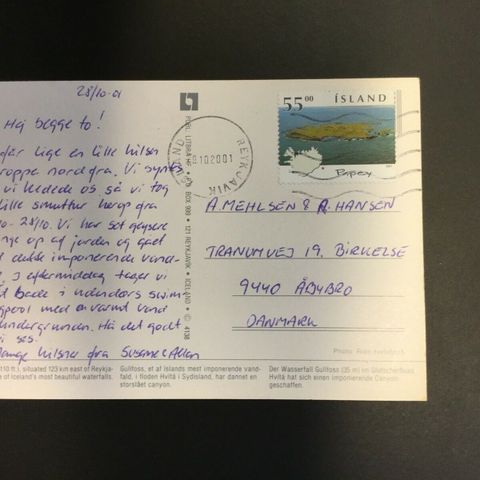 28/10-01
Hej begge to!
får lige en lille hilsen
oppe nordfra. Vi synes
vi kedede os så vi tog
lille smuttur herop fra
- 28/10. Vi har set geysere
op af jorden og gået
imponerende vand-
I eftermiddag tager vi
bade i udendørs swim
gpool med varmt vand
undergrunden. Ha det godt
ses.
Mange hilsner fra Susanne & Allan
PUBL. LITBRÁ HF. BOX 999 • 121 REYKJAVIK • ICELAND • © 4138
ÍSLAND
REYKJAVIK
10 2001
55.00 ÍSLAND
Papey
A. MEHLSEN & R. HANSEN
TRANUMVEJ 19, BIRKELSE
9440 ÅBYBRO
DANMARK
Photo: Rafn Hafnfjörð
110 ft.), situated 123 km east of Reykja-
e of Iceland's most beautiful waterfalls.
Gullfoss, et af Islands mest imponerende vand-
fald, i floden Hvítá i Sydisland, har dannet en
storslået canyon.
Der Wasserfall Gullfoss (35 m) im Gletscherfluss
Hvítá hat sich einen imponierende Canyon
geschaffen.